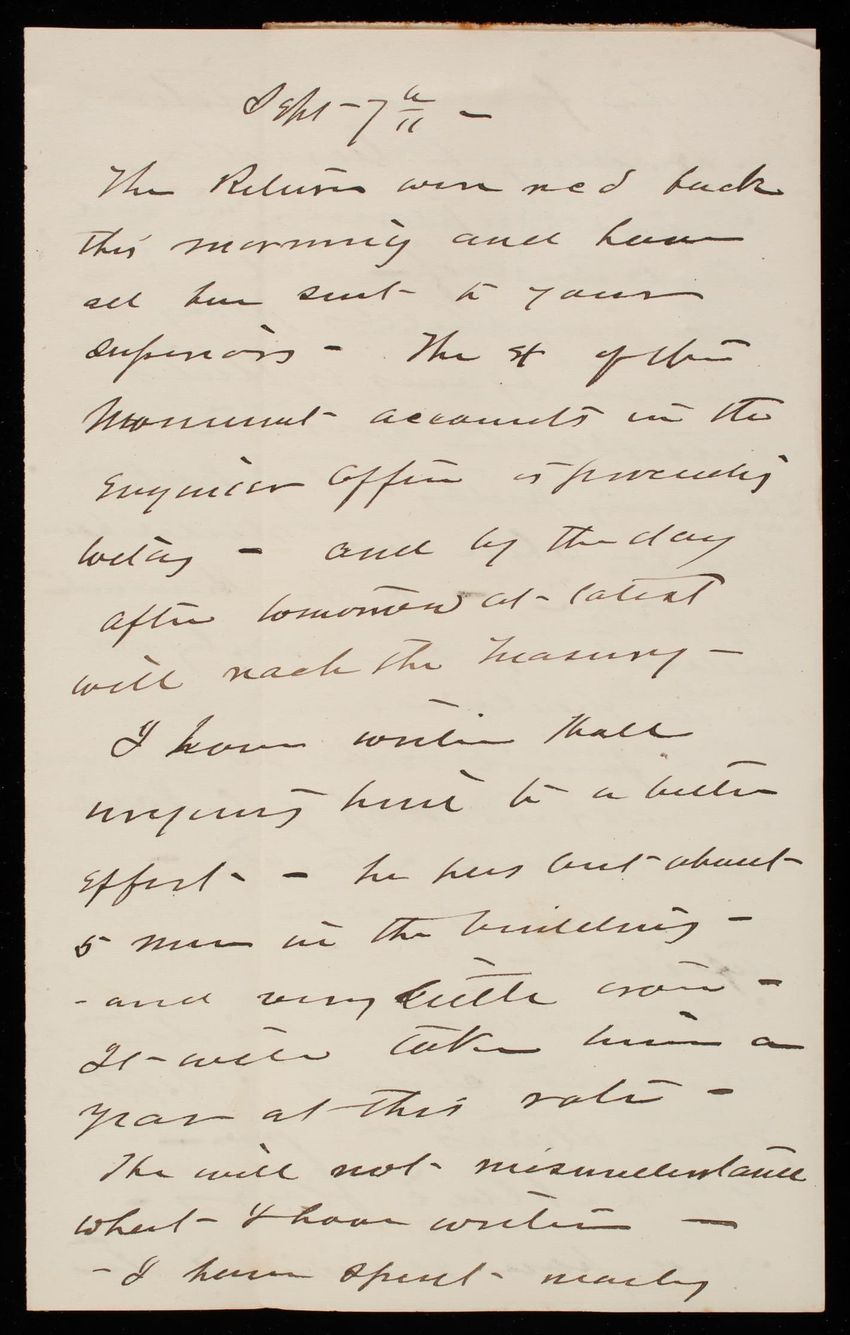 Sept - 7th -
The Returns were rec'd back
this morning and have
all been sent to your
superiors - The of the
Monument accounts in the
Engineer Office is proceeding
today - and by the day
after tomorrow at latest
will reach the Treasury -
I have written
urging him to a better
effort - - he has but about
5 men in the building -
- and very little iron -
It will take him a
year at this rate -
He will not misunderstand
what I have written -
- I have spent nearly